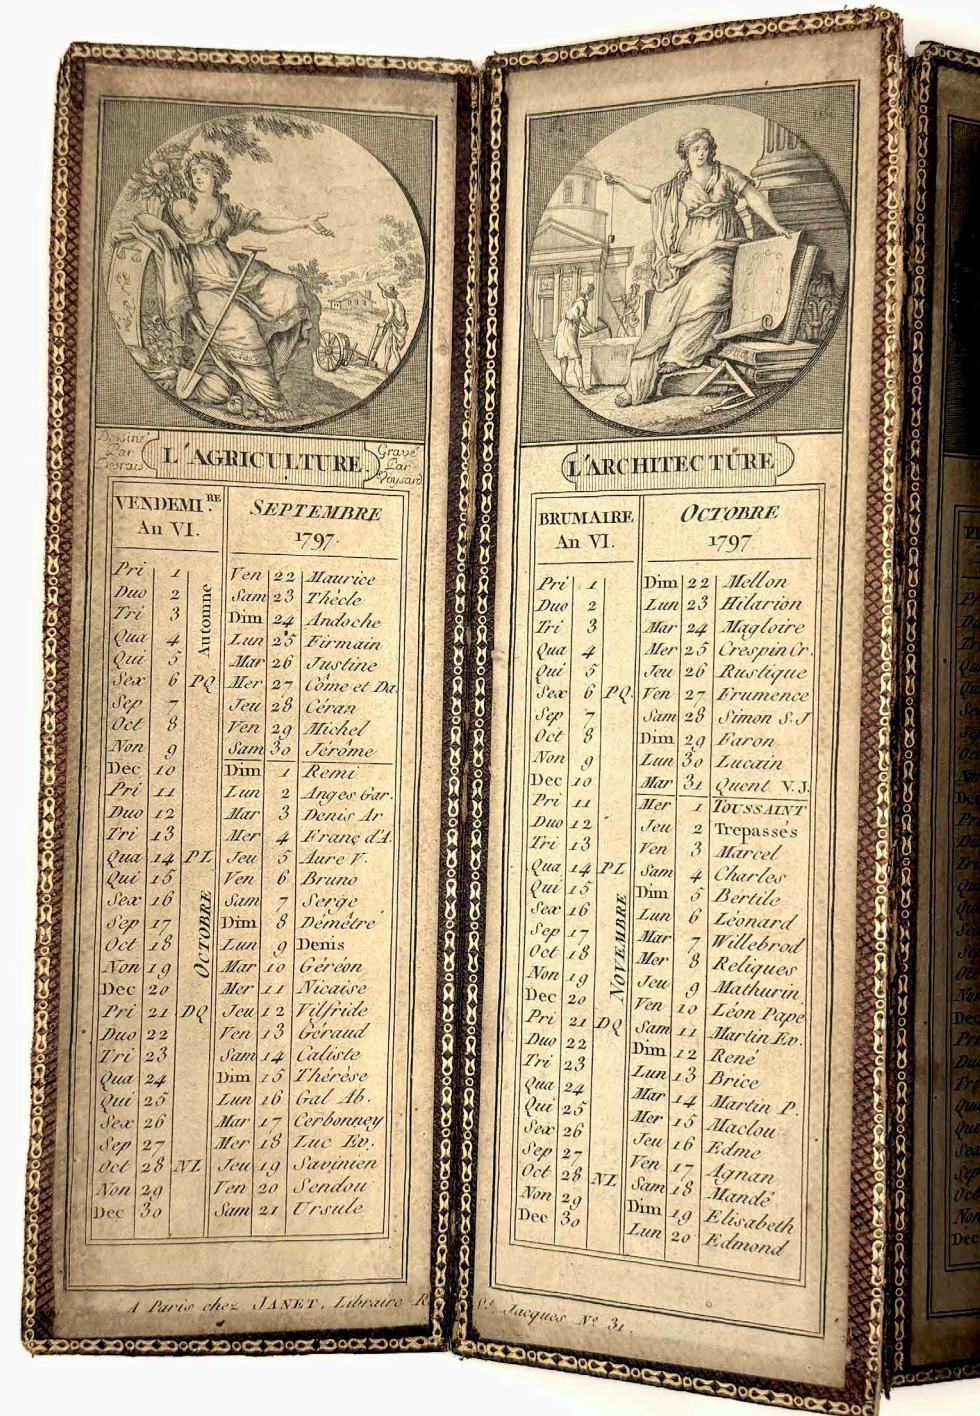 Dessiné
Par
Desrais
L'AGRICULTURE.
Gravé
Par
Voysard
VENDEMI.RE
An VI.
SEPTEMBRE
1797.
Automne
OCTOBRE
Pri 1 Ven 22 Maurice
Duo 2 Sam 23 Thécle
Tri 3 Dim 24 Andoche
Qua 4 Lun 25 Firmain
Qui 5 Mar 26 Justine
Sex 6 PQ Mer 27 Côme et Da.
Sep 7 Jeu 28 Céran
Oct 8 Ven 29 Michel
Non 9 Sam 30 Jérôme
Dec 10 Dim 1 Remi
Pri 11 Lun 2 Anges Gar.
Duo 12 Mar 3 Denis Ar
Tri 13 Mer 4 Franç d'A.
Qua 14 PL Jeu 5 Aure V.
Qui 15 Ven 6 Bruno
Sex 16 Sam 7 Serge
Sep 17 Dim 8 Démétre
Oct 18 Lun 9 Denis
Non 19 Mar 10 Géréon
Dec 20 Mer 11 Nicaise
Pri 21 DQ Jeu 12 Vilfride
Duo 22 Ven 13 Géraud
Tri 23 Sam 14 Caliste
Qua 24 Dim 15 Thérèse
Qui 25 Lun 16 Gal Ab.
Sex 26 Mar 17 Cerbonney
Sep 27 Mer 18 Luc Ev.
Oct 28 NL Jeu 19 Savinien
Non 29 Ven 20 Sendou
Dec 30 Sam 21 Ursule
L'ARCHITECTURE
BRUMAIRE
An VI.
OCTOBRE
1797
NOVEMBRE
Pri 1 Dim 22 Mellon
Duo 2 Lun 23 Hilarion
Tri 3 Mar 24 Magloire
Qua 4 Mer 25 Crespin Cr.
Qui 5 Jeu 26 Rustique
Sex 6 PQ. Ven 27 Frumence
Sep 7 Sam 28 Simon S.J
Oct 8 Dim 29 Faron
Non 9 Lun 30 Lucain
Dec 10 Mar 31 Quent V.J.
Pri 11 Mer 1 TOUSSAINT
Duo 12 Jeu 2 Trepassés
Tri 13 Ven 3 Marcel
Qua 14 PL Sam 4 Charles
Qui 15 Dim 5 Bertile
Sex 16 Lun 6 Léonard
Sep 17 Mar 7 Willebrod
Oct 18 Mer 8 Reliques
Non 19 Jeu 9 Mathurin
Dec 20 Ven 10 Léon Pape
Pri 21 DQ Sam 11 Martin Ev.
Duo 22 Dim 12 René
Tri 23 Lun 13 Brice
Qua 24 Mar 14 Martin P.
Qui 25 Mer 15 Maclou
Sex 26 Jeu 16 Edme
Sep 27 Ven 17 Agnan
Oct 28 NL Sam 18 Mandé
Non 29 Dim 19 Elisabeth
Dec 30 Lun 20 Edmond
A Paris chez JANET, Libraire R St. Jacques No. 31.